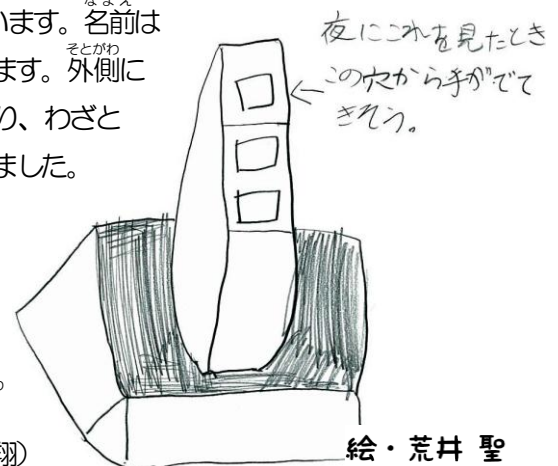 います。名前は
なまえ
ます。外側に
そとがわ
り、わざと
ました。
夜にこれを見たとき
この穴から手がでて
きそう。
。
翔)
絵・荒井 聖